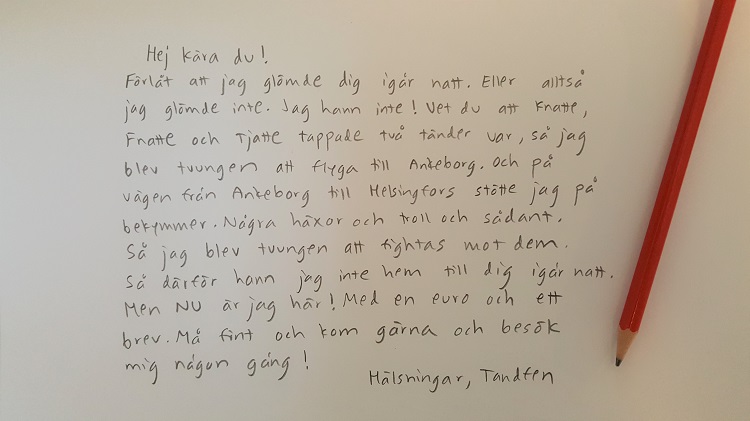 Hej kära du!
Förlåt att jag glömde dig igår natt. Eller alltså
jag glömde inte. Jag hann inte! Vet du att Knatte,
Fnatte och Tjatte tappade två tänder var, så jag
blev tvungen att flyga till Ankeborg. Och på
vägen från Ankeborg till Helsingfors stötte jag på
bekymmer. Några häxor och troll och sådant.
Så jag blev tvungen att fightas mot dem.
Så därför hann jag inte hem till dig igår natt.
Men NU är jag här! Med en euro och ett
brev. Må fint och kom gärna och besök
mig någon gång!
Hälsningar, Tandfen